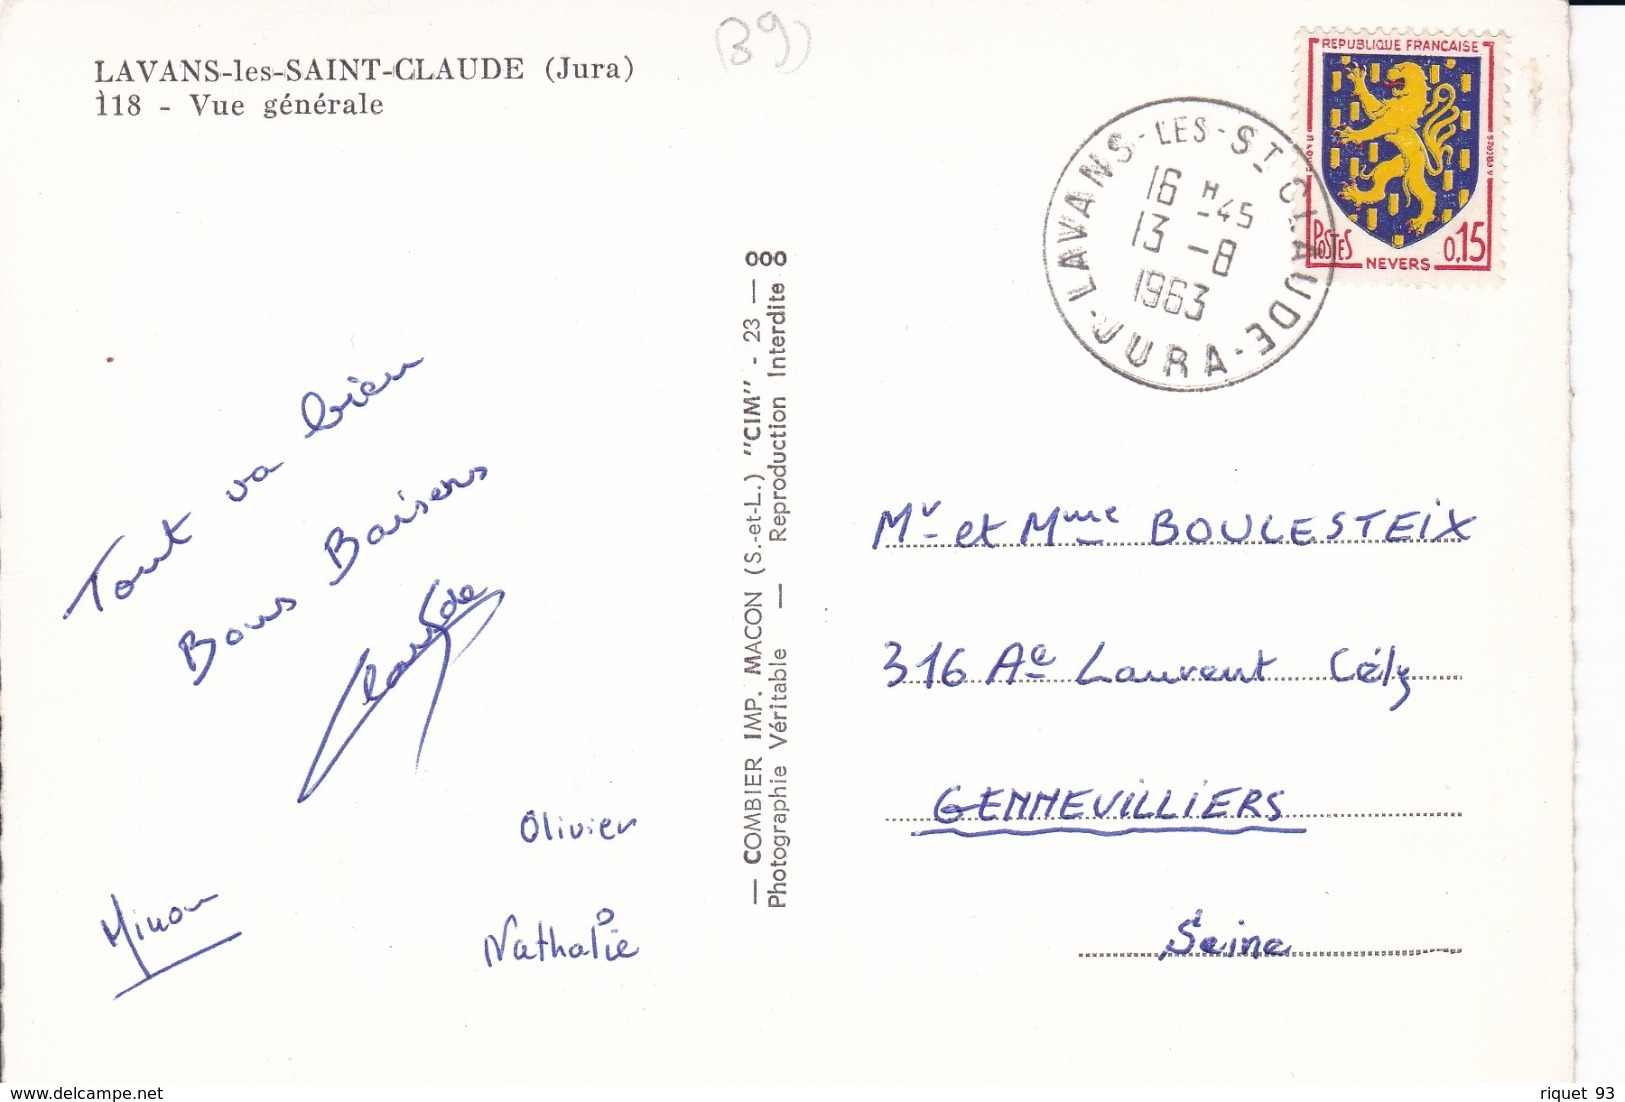 39
LAVANS-les-SAINT-CLAUDE (Jura)
118 - Vue générale
REPUBLIQUE FRANCAISE
POSTES 0,15
NEVERS
LAVANS-LES-ST-CLAUDE
16 H 45
13 - 8
1963
- JURA -
Tout va bien
Bons Baisers
Claude
Olivier
Nathalie
— COMBIER IMP. MACON (S.-et-L.) "CIM" - 23 — 000
Photographie Véritable — Reproduction Interdite
Mr et Mme BOULESTEIX
316 Ae Laurent Cély
GENNEVILLIERS
Seine
www.delcampe.net
riquet 93